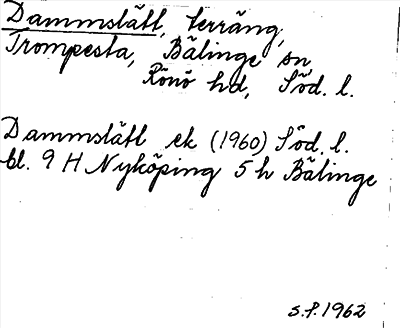 Dammslätt, terräng,
Trompesta, Bälinge sn
Rönö hd, Söd. l.
Dammslätt ek (1960) Söd. l.
bl. 9 H Nyköping 5 h Bälinge
S.P. 1962